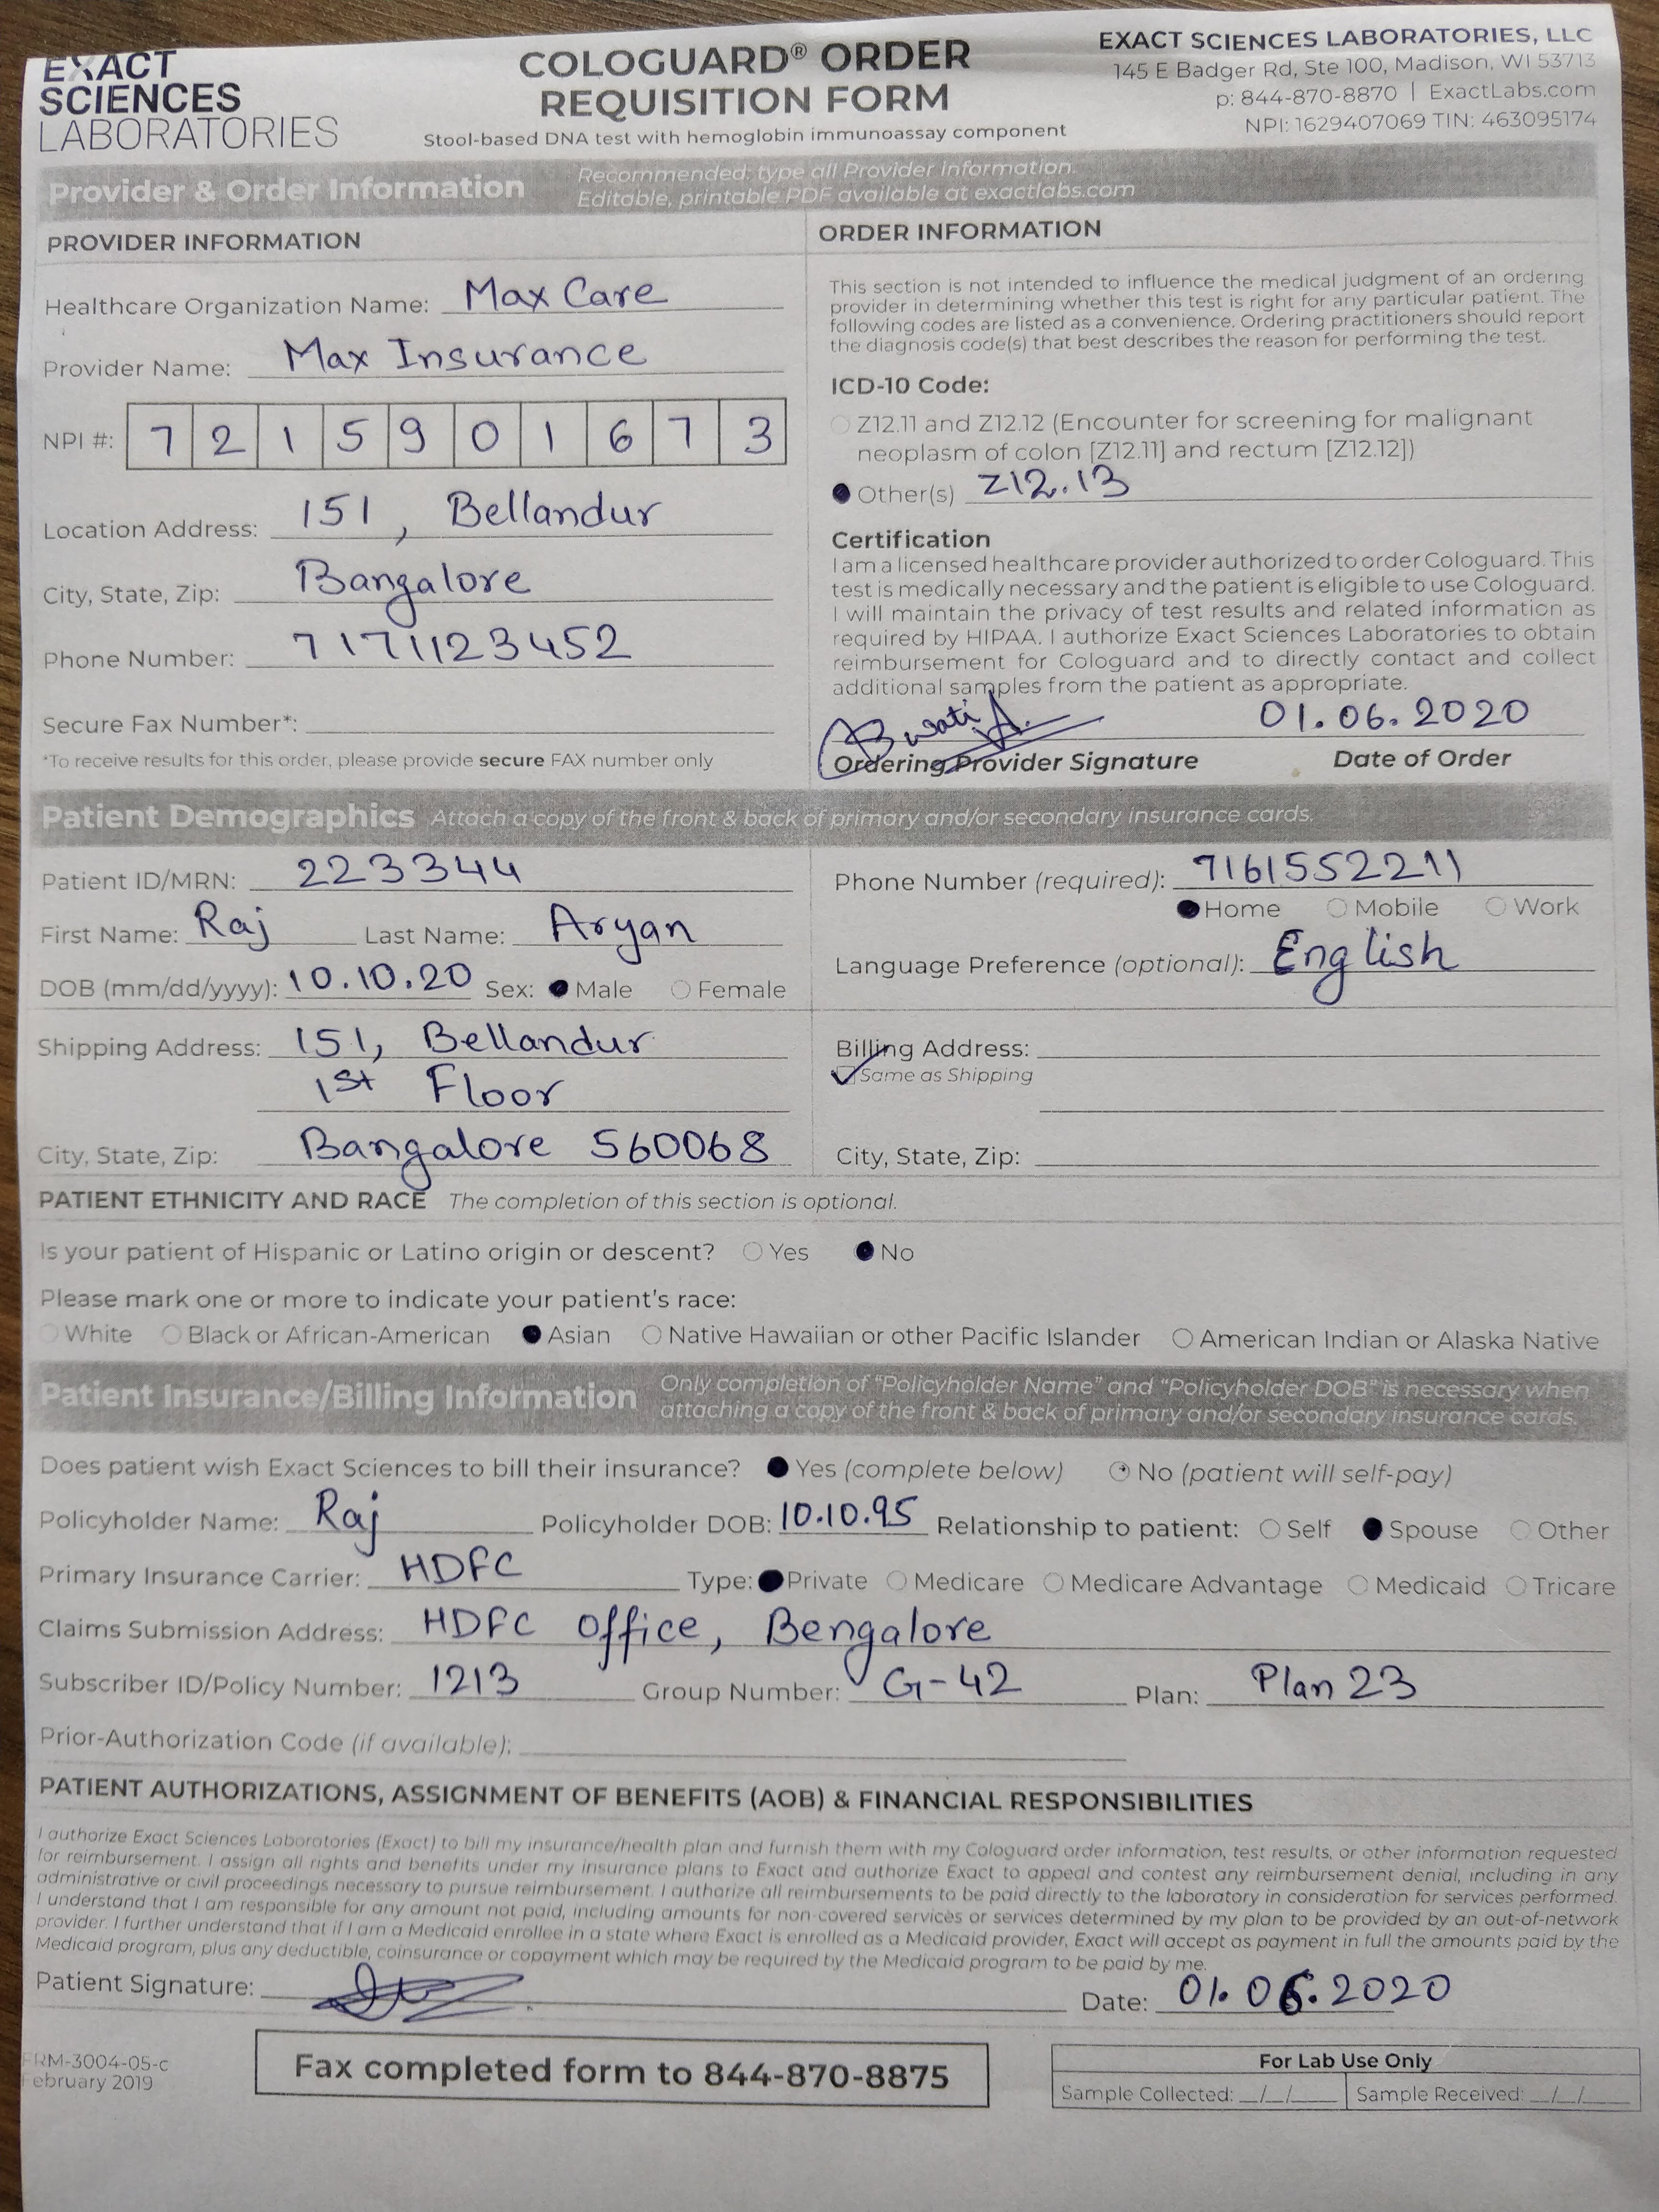 EXACT
SCIENCES
LABORATORIES
COLOGUARD® ORDER
REQUISITION FORM
Stool-based DNA test with hemoglobin immunoassay component
EXACT SCIENCES LABORATORIES, LLC
145 E Badger Rd, Ste 100, Madison, WI 53713
p: 844-870-8870 | ExactLabs.com
NPI: 1629407069 TIN: 463095174
Provider & Order Information
Recommended: type all Provider Information.
Editable, printable PDF available at exactlabs.com
PROVIDER INFORMATION
Healthcare Organization Name: Max Care
Provider Name: Max Insurance
NPI #: 7 2 1 5 9 0 1 6 7 3
Location Address: 151, Bellandur
City, State, Zip: Bangalore
Phone Number: 7171123452
Secure Fax Number*:
*To receive results for this order, please provide secure FAX number only
ORDER INFORMATION
This section is not intended to influence the medical judgment of an ordering
provider in determining whether this test is right for any particular patient. The
following codes are listed as a convenience. Ordering practitioners should report
the diagnosis code(s) that best describes the reason for performing the test.
ICD-10 Code:
Z12.11 and Z12.12 (Encounter for screening for malignant
neoplasm of colon [Z12.11] and rectum [Z12.12])
Other(s) Z12.13
Certification
I am a licensed healthcare provider authorized to order Cologuard. This
test is medically necessary and the patient is eligible to use Cologuard.
I will maintain the privacy of test results and related information as
required by HIPAA. I authorize Exact Sciences Laboratories to obtain
reimbursement for Cologuard and to directly contact and collect
additional samples from the patient as appropriate.
01.06.2020
Ordering Provider Signature Date of Order
Patient Demographics Attach a copy of the front & back of primary and/or secondary insurance cards.
Patient ID/MRN: 223344
First Name: Raj Last Name: Aryan
DOB (mm/dd/yyyy): 10.10.20 Sex: Male Female
Phone Number (required): 7161552211
Home Mobile Work
Language Preference (optional): English
Shipping Address: 151, Bellandur
1st Floor
City, State, Zip: Bangalore 560068
Billing Address:
Same as Shipping
City, State, Zip:
PATIENT ETHNICITY AND RACE The completion of this section is optional.
Is your patient of Hispanic or Latino origin or descent? Yes No
Please mark one or more to indicate your patient's race:
White Black or African-American Asian Native Hawaiian or other Pacific Islander American Indian or Alaska Native
Patient Insurance/Billing Information
Only completion of "Policyholder Name" and "Policyholder DOB" is necessary when
attaching a copy of the front & back of primary and/or secondary insurance cards.
Does patient wish Exact Sciences to bill their insurance? Yes (complete below) No (patient will self-pay)
Policyholder Name: Raj Policyholder DOB: 10.10.95 Relationship to patient: Self Spouse Other
Primary Insurance Carrier: HDFC Type: Private Medicare Medicare Advantage Medicaid Tricare
Claims Submission Address: HDFC office, Bengalore
Subscriber ID/Policy Number: 1213 Group Number: G-42 Plan: Plan 23
Prior-Authorization Code (if available):
PATIENT AUTHORIZATIONS, ASSIGNMENT OF BENEFITS (AOB) & FINANCIAL RESPONSIBILITIES
I authorize Exact Sciences Laboratories (Exact) to bill my insurance/health plan and furnish them with my Cologuard order information, test results, or other information requested
for reimbursement. I assign all rights and benefits under my insurance plans to Exact and authorize Exact to appeal and contest any reimbursement denial, including in any
administrative or civil proceedings necessary to pursue reimbursement. I authorize all reimbursements to be paid directly to the laboratory in consideration for services performed.
I understand that I am responsible for any amount not paid, including amounts for non-covered services or services determined by my plan to be provided by an out-of-network
provider. I further understand that if I am a Medicaid enrollee in a state where Exact is enrolled as a Medicaid provider, Exact will accept as payment in full the amounts paid by the
Medicaid program, plus any deductible, coinsurance or copayment which may be required by the Medicaid program to be paid by me.
Patient Signature: Date: 01.06.2020
FRM-3004-05-c
February 2019
Fax completed form to 844-870-8875
For Lab Use Only
Sample Collected: __/__/__ Sample Received: __/__/__